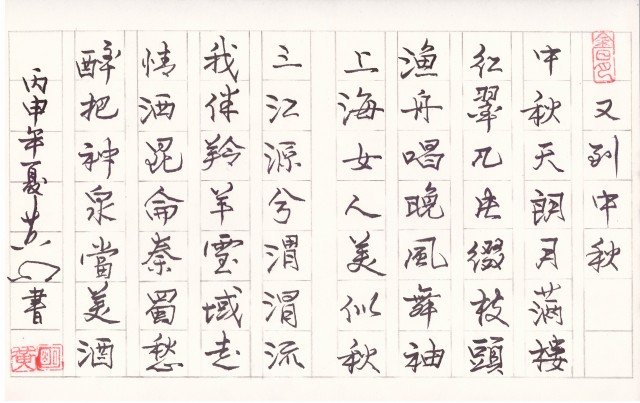 又到中秋
中秋天朗月满楼
红翠几缀枝頭
渔舟唱晚風舞袖
上海女人美似秋
三江源兮渭渭流
我伴羚羊霊域走
情洒昆侖秦蜀愁
醉把神泉當美酒
丙申年夏書